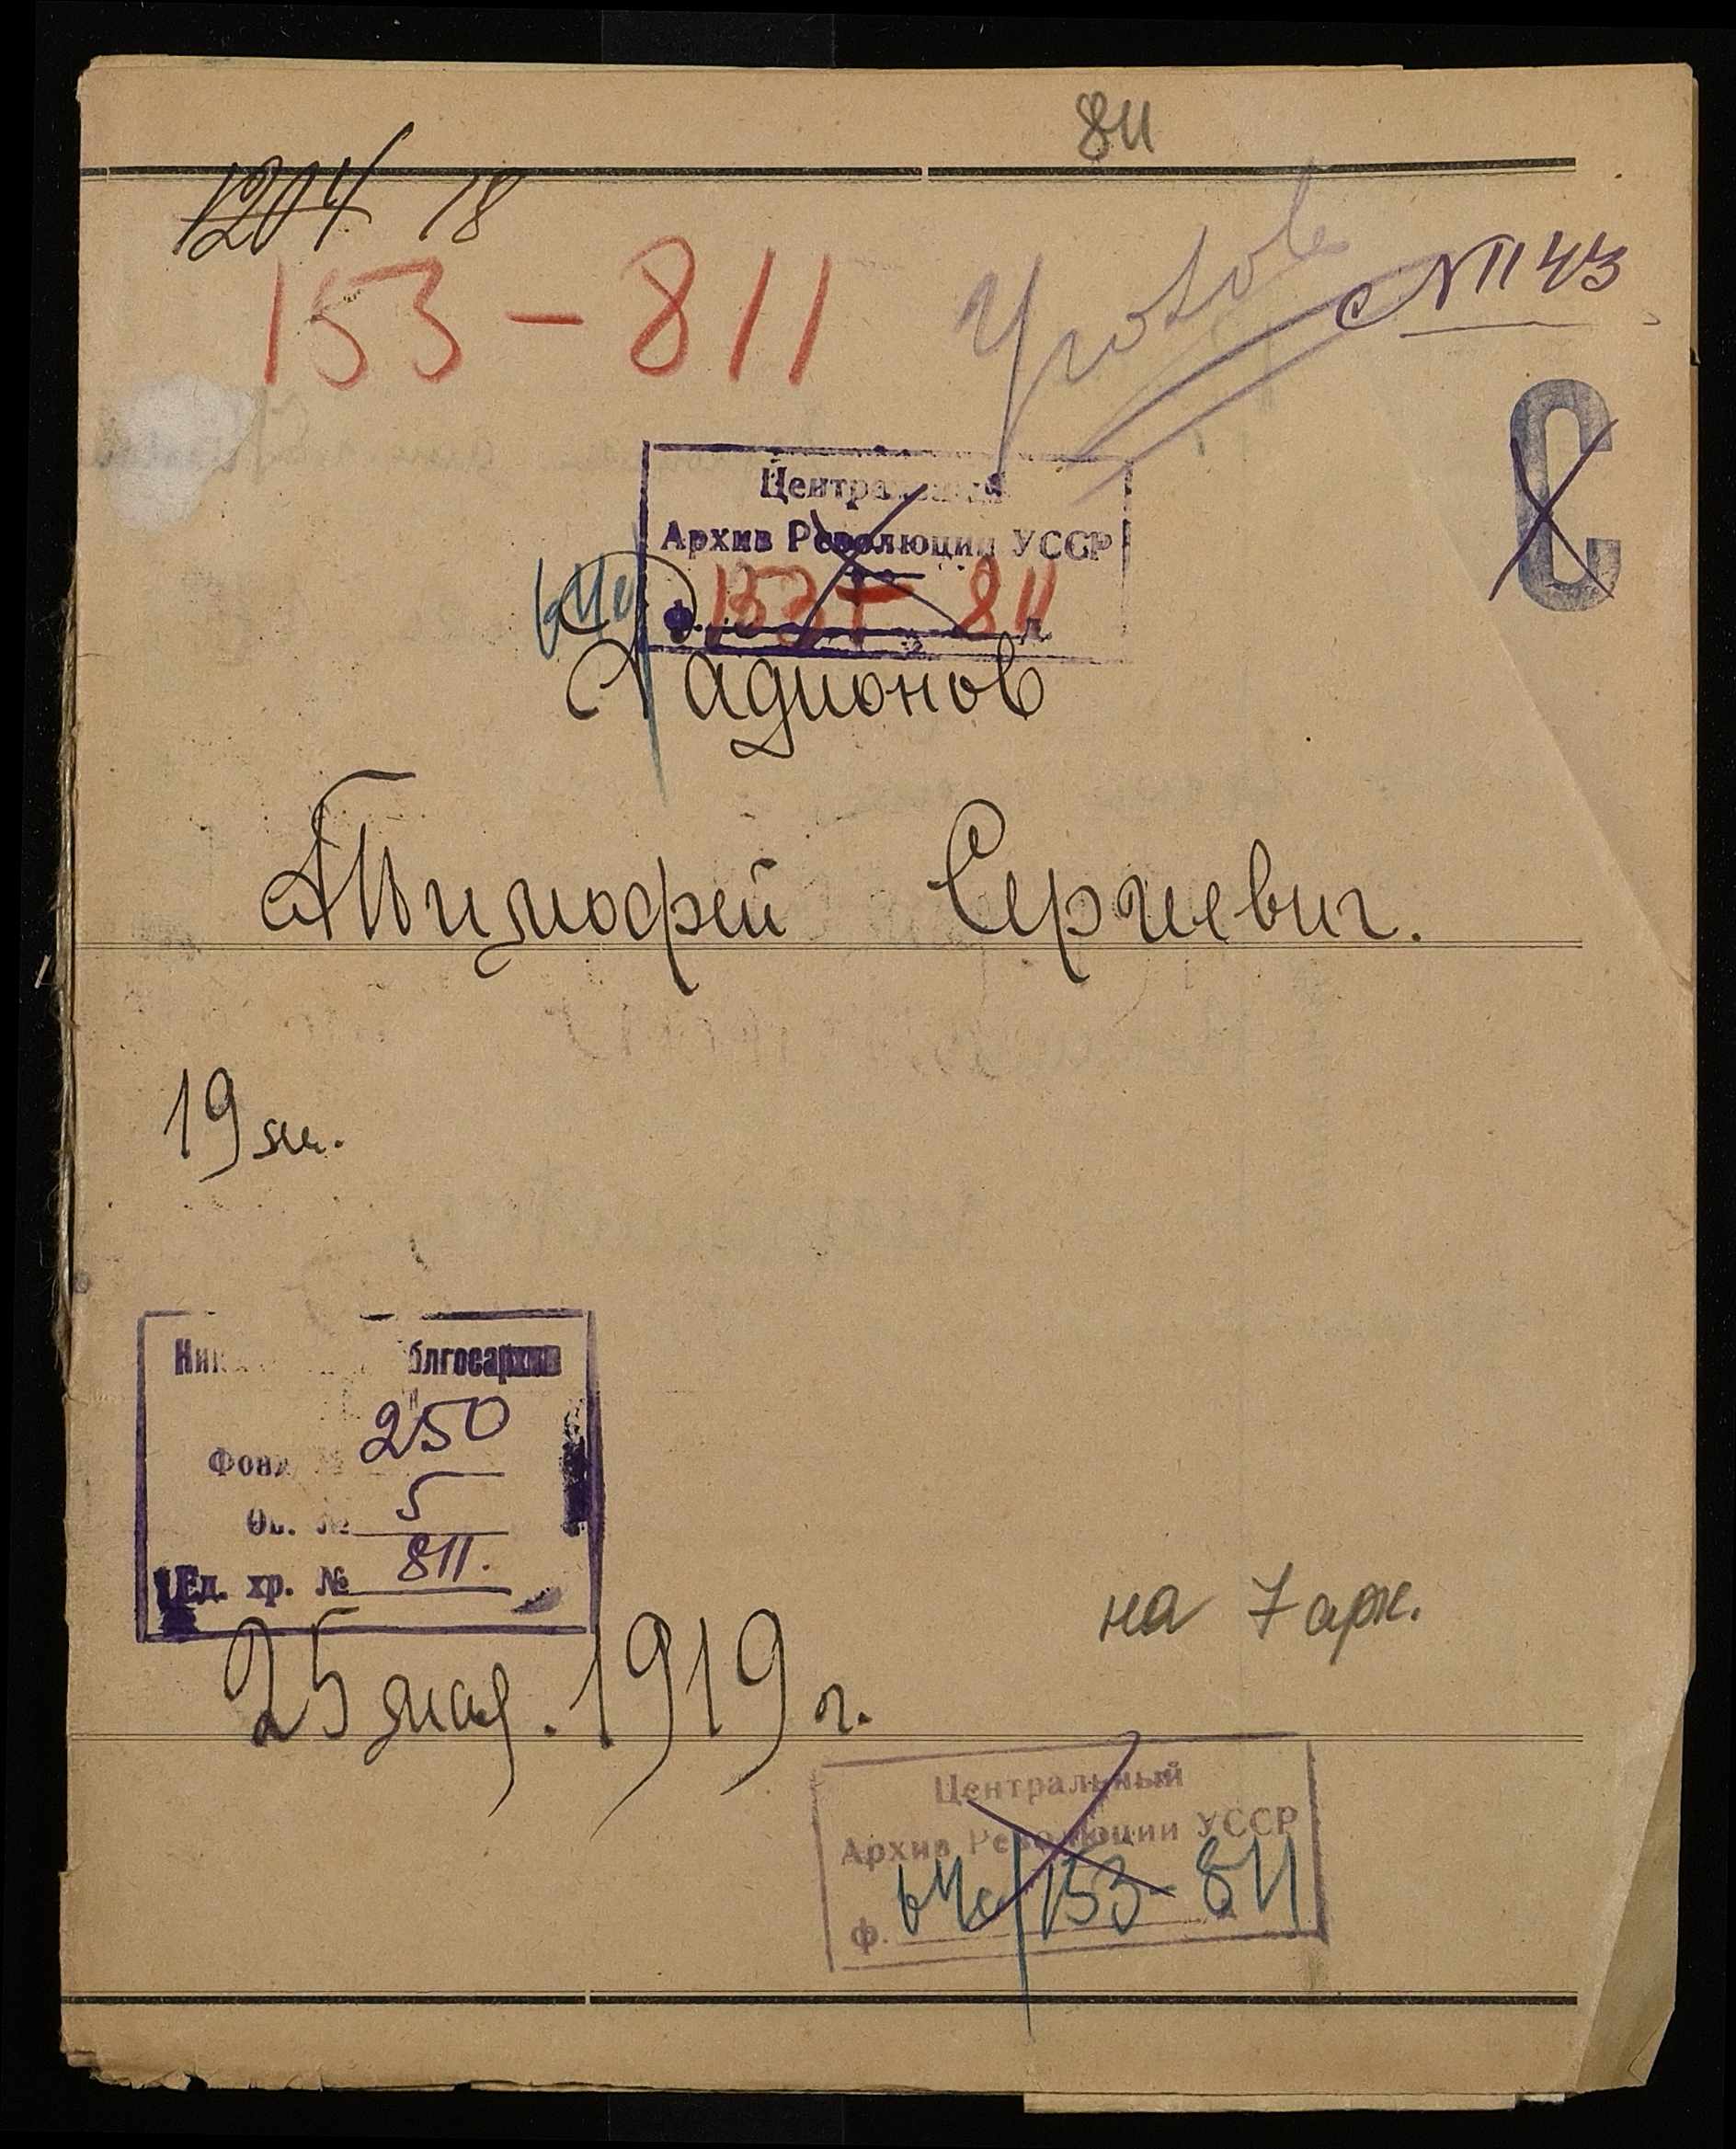 811
1204 18
153-811
№ 1143
С
Центральный
Архив Революции УССР
ф. 153 - 811 д.
Радионов
Тимофей Сергиевич.
19
облгосархив
Фонд № 250
Оп. № 5
Ед. хр. № 811.
25 мая. 1919 г.
на 7 арк.
Центральный
Архив Революции УССР
ф. 153-811